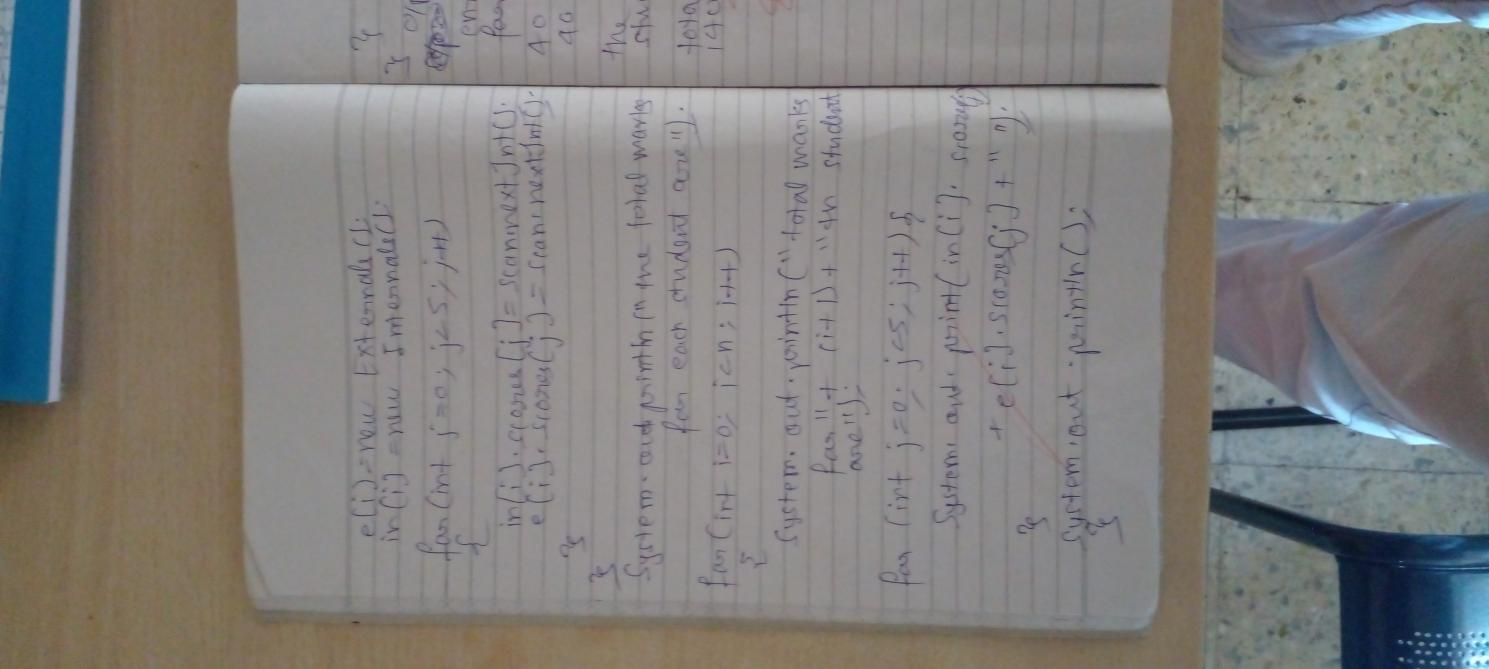 e[i]=new Externals();
in[i] =new Internals();
for(int j=0; j<5; j++)
{
in[i].scores[j]= scan.nextInt();
e[i].scores[j]=scan.nextInt();
}
}
System.out.println("the total marks
for each student are");
for(int i=0; i<n; i++)
{
System.out.println("total marks
for"+ (i+1)+"th student
are");
for (int j=0; j<5; j++){
System.out.print(in[i].scores[j]
+ e[i].scores[j]+" ");
}
System.out.println();
}
}
}
o/p
40
the